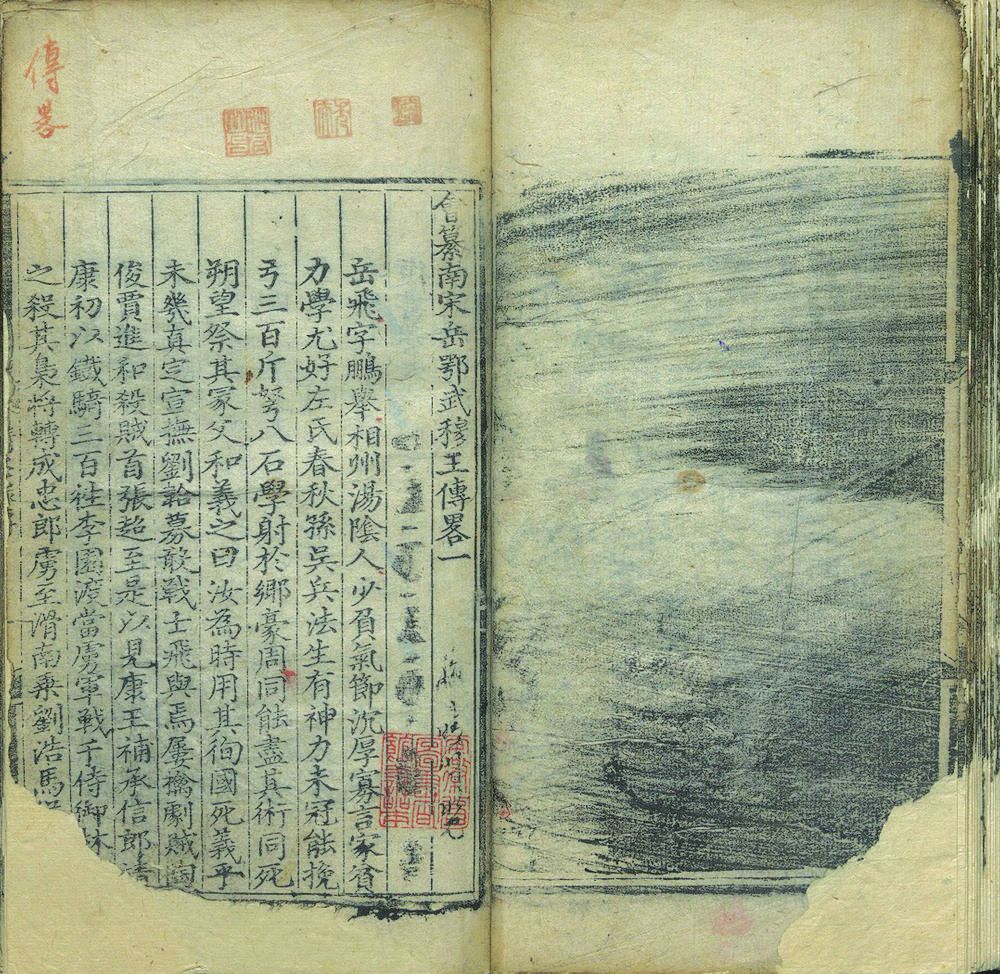 會纂南宋岳鄂武穆王傳畧一
岳飛字鵬舉相州湯陰人少負氣節沉厚寡言家貧
力學尤好左氏春秋孫吳兵法生有神力未冠能挽
弓三百斤弩八石學射於鄉豪周同能盡其術同死
朔望祭其冢父和義之曰汝為時用其徇國死義乎
未幾真定宣撫劉韐募敢戰士飛與焉屢擒劇賊陶
俊賈進和殺賊首張超至是以見康王補承信郎靖
康初以鐵騎三百往李園渡當虜軍戰于侍御林
之殺其梟將轉成忠郎虜至滑南乘劉浩馬
傳畧